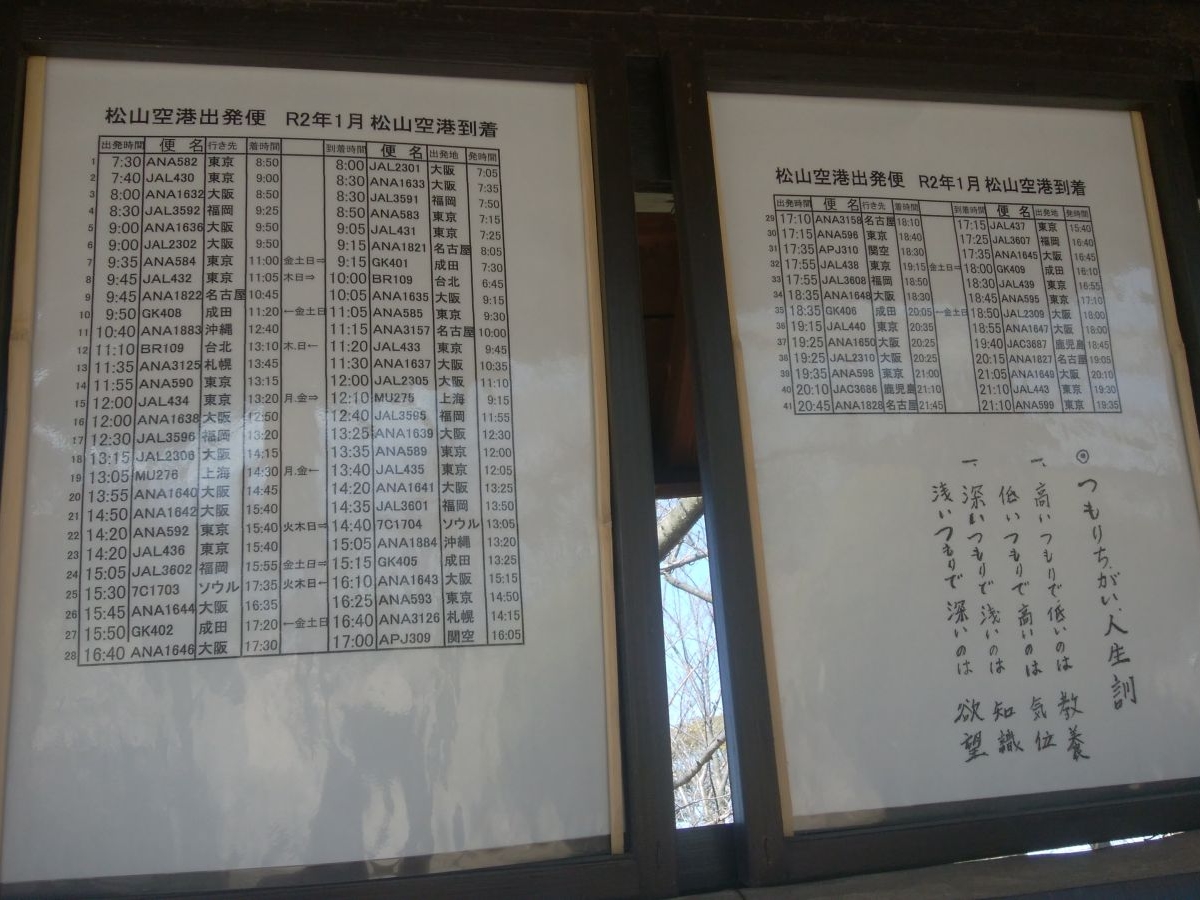 松山空港出発便 R2年1月 松山空港到着
出発時間 便名 行き先 着時間 到着時間 便名 出発地 発時間
1 7:30 ANA582 東京 8:50 8:00 JAL2301 大阪 7:05
2 7:40 JAL430 東京 9:00 8:30 ANA1633 大阪 7:35
3 8:00 ANA1632 大阪 8:50 8:30 JAL3591 福岡 7:50
4 8:30 JAL3592 福岡 9:25 8:50 ANA583 東京 7:15
5 9:00 ANA1636 大阪 9:50 9:05 JAL431 東京 7:25
6 9:00 JAL2302 大阪 9:50 9:15 ANA1821 名古屋 8:05
7 9:35 ANA584 東京 11:00 金土日⇒ 9:15 GK401 成田 7:30
8 9:45 JAL432 東京 11:05 木日⇒ 10:00 BR109 台北 6:45
9 9:45 ANA1822 名古屋 10:45 10:05 ANA1635 大阪 9:15
10 9:50 GK408 成田 11:20 ←金土日 11:05 ANA585 東京 9:30
11 10:40 ANA1883 沖縄 12:40 11:15 ANA3157 名古屋 10:00
12 11:10 BR109 台北 13:10 木.日← 11:20 JAL433 東京 9:45
13 11:35 ANA3125 札幌 13:45 11:30 ANA1637 大阪 10:35
14 11:55 ANA590 東京 13:15 12:00 JAL2305 大阪 11:10
15 12:00 JAL434 東京 13:20 月.金⇒ 12:10 MU275 上海 9:15
16 12:00 ANA1638 大阪 12:50 12:40 JAL3595 福岡 11:55
17 12:30 JAL3596 福岡 13:20 13:25 ANA1639 大阪 12:30
18 13:15 JAL2306 大阪 14:15 13:35 ANA589 東京 12:00
19 13:05 MU276 上海 14:30 月.金← 13:40 JAL435 東京 12:05
20 13:55 ANA1640 大阪 14:45 14:20 ANA1641 大阪 13:25
21 14:50 ANA1642 大阪 15:40 14:35 JAL3601 福岡 13:50
22 14:20 ANA592 東京 15:40 火木日⇒ 14:40 7C1704 ソウル 13:05
23 14:20 JAL436 東京 15:40 15:05 ANA1884 沖縄 13:20
24 15:05 JAL3602 福岡 15:55 金土日⇒ 15:15 GK405 成田 13:25
25 15:30 7C1703 ソウル 17:35 火木日← 16:10 ANA1643 大阪 15:15
26 15:45 ANA1644 大阪 16:35 16:25 ANA593 東京 14:50
27 15:50 GK402 成田 17:20 ←金土日 16:40 ANA3126 札幌 14:15
28 16:40 ANA1646 大阪 17:30 17:00 APJ309 関空 16:05
松山空港出発便 R2年1月 松山空港到着
出発時間 便名 行き先 着時間 到着時間 便名 出発地 発時間
29 17:10 ANA3158 名古屋 18:10 17:15 JAL437 東京 15:40
30 17:15 ANA596 東京 18:40 17:25 JAL3607 福岡 16:40
31 17:35 APJ310 関空 18:30 17:35 ANA1645 大阪 16:45
32 17:55 JAL438 東京 19:15 金土日⇒ 18:00 GK409 成田 16:10
33 17:55 JAL3608 福岡 18:50 18:30 JAL439 東京 16:55
34 18:35 ANA1648 大阪 18:30 18:45 ANA595 東京 17:10
35 18:35 GK406 成田 20:05 ←金土日 18:50 JAL2309 大阪 18:00
36 19:15 JAL440 東京 20:35 18:55 ANA1647 大阪 18:00
37 19:25 ANA1650 大阪 20:25 19:40 JAC3687 鹿児島 18:45
38 19:25 JAL2310 大阪 20:25 20:15 ANA1827 名古屋 19:05
39 19:35 ANA598 東京 21:00 21:05 ANA1649 大阪 20:10
40 20:10 JAC3686 鹿児島 21:10 21:10 JAL443 東京 19:30
41 20:45 ANA1828 名古屋 21:45 21:10 ANA599 東京 19:35
◎つもりちがい人生訓
一、高いつもりで低いのは 教養
低いつもりで高いのは 気位
一、深いつもりで浅いのは 知識
浅いつもりで深いのは 欲望